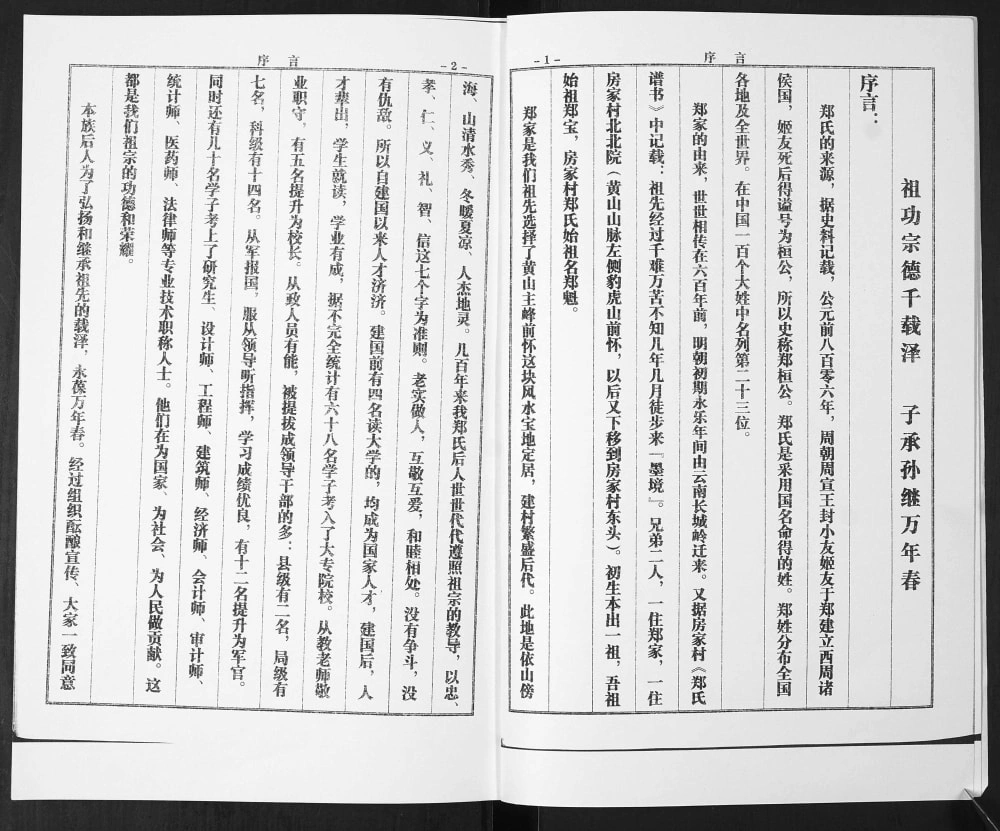 序言
-1-
祖功宗德千载泽 子承孙继万年春
序言：
郑氏的来源，据史料记载，公元前八百零六年，周朝周宣王封小友姬友于郑建立西周诸
侯国，姬友死后得谥号为桓公，所以史称郑桓公。郑氏是采用国名命得的姓。郑姓分布全国
各地及全世界。在中国一百个大姓中名列第二十三位。
郑家的由来，世世相传在六百年前，明朝初期永乐年间由云南长城岭迁来。又据房家村《郑氏
谱书》中记载：祖先经过千难万苦不知几年几月徒步来『墨境』。兄弟二人，一住郑家，一住
房家村北北院（黄山山脉左侧豹虎山前怀，以后又下移到房家村东头）。初生本出一祖，吾祖
始祖郑宝，房家村郑氏始祖名郑魁。
郑家是我们祖先选择了黄山主峰前怀这块风水宝地定居，建村繁盛后代。此地是依山傍
序言
-2-
海、山清水秀、冬暖夏凉、人杰地灵。几百年来我郑氏后人世世代代遵照祖宗的教导，以忠、
孝、仁、义、礼、智、信这七个字为准则。老实做人，互敬互爱，和睦相处。没有争斗，没
有仇敌。所以自建国以来人才济济。建国前有四名读大学的，均成为国家人才，建国后，人
才辈出，学生就读，学业有成，据不完全统计有六十八名学子考入了大专院校。从教老师敬
业职守，有五名提升为校长。从政人员有能，被提拔成领导干部的多：县级有二名，局级有
七名，科级有十四名。从军报国，服从领导听指挥，学习成绩优良，有十二名提升为军官。
同时还有几十名学子考上了研究生、设计师、工程师、建筑师、经济师、会计师、审计师、
统计师、医药师、法律师等专业技术职称人士。他们在为国家、为社会、为人民做贡献。这
都是我们祖宗的功德和荣耀。
本族后人为了弘扬和继承祖先的载泽，永葆万年春。经过组织酝酿宣传、大家一致同意